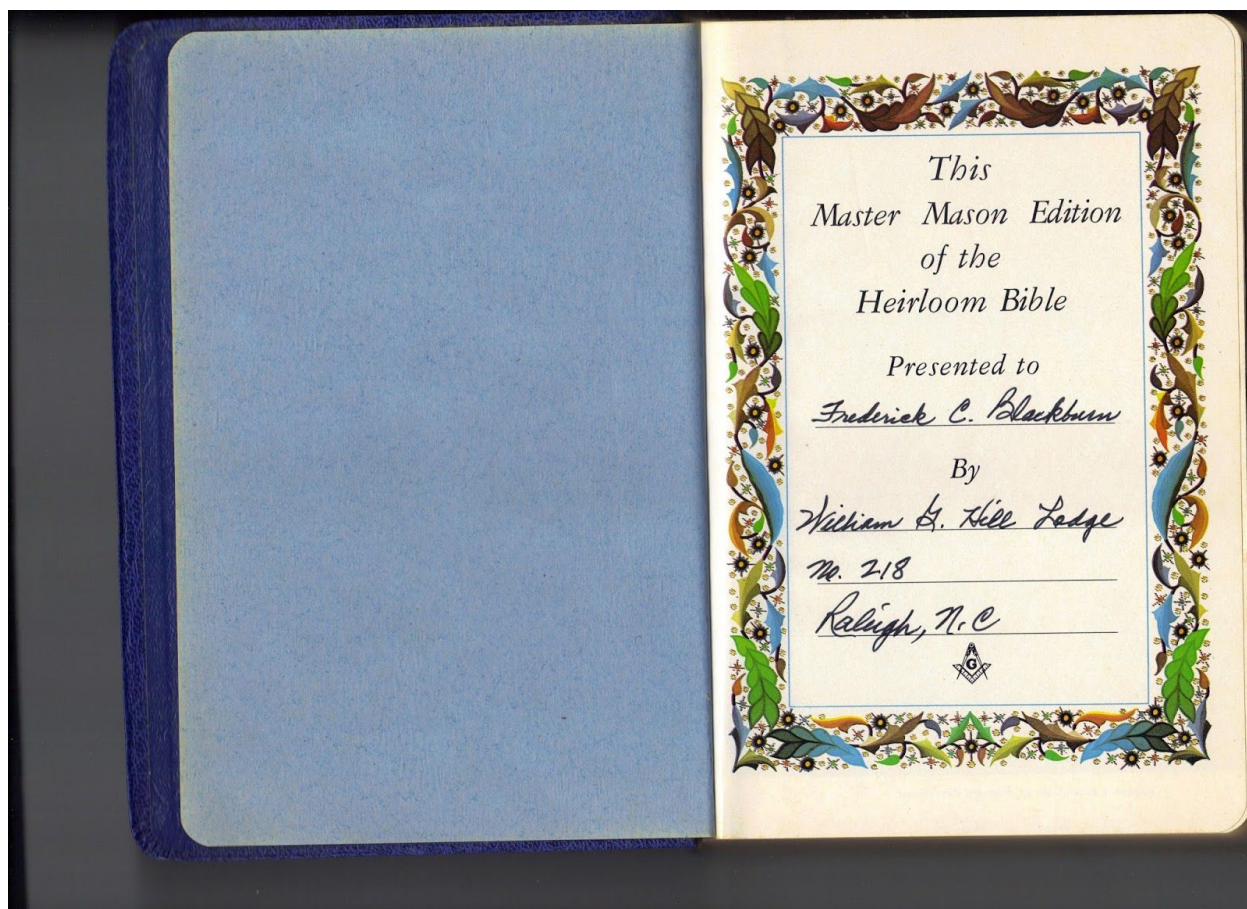 This
Master Mason Edition
of the
Heirloom Bible
Presented to
Frederick C. Blackburn
By
William G. Hill Lodge
No. 218
Raleigh, N.C
G